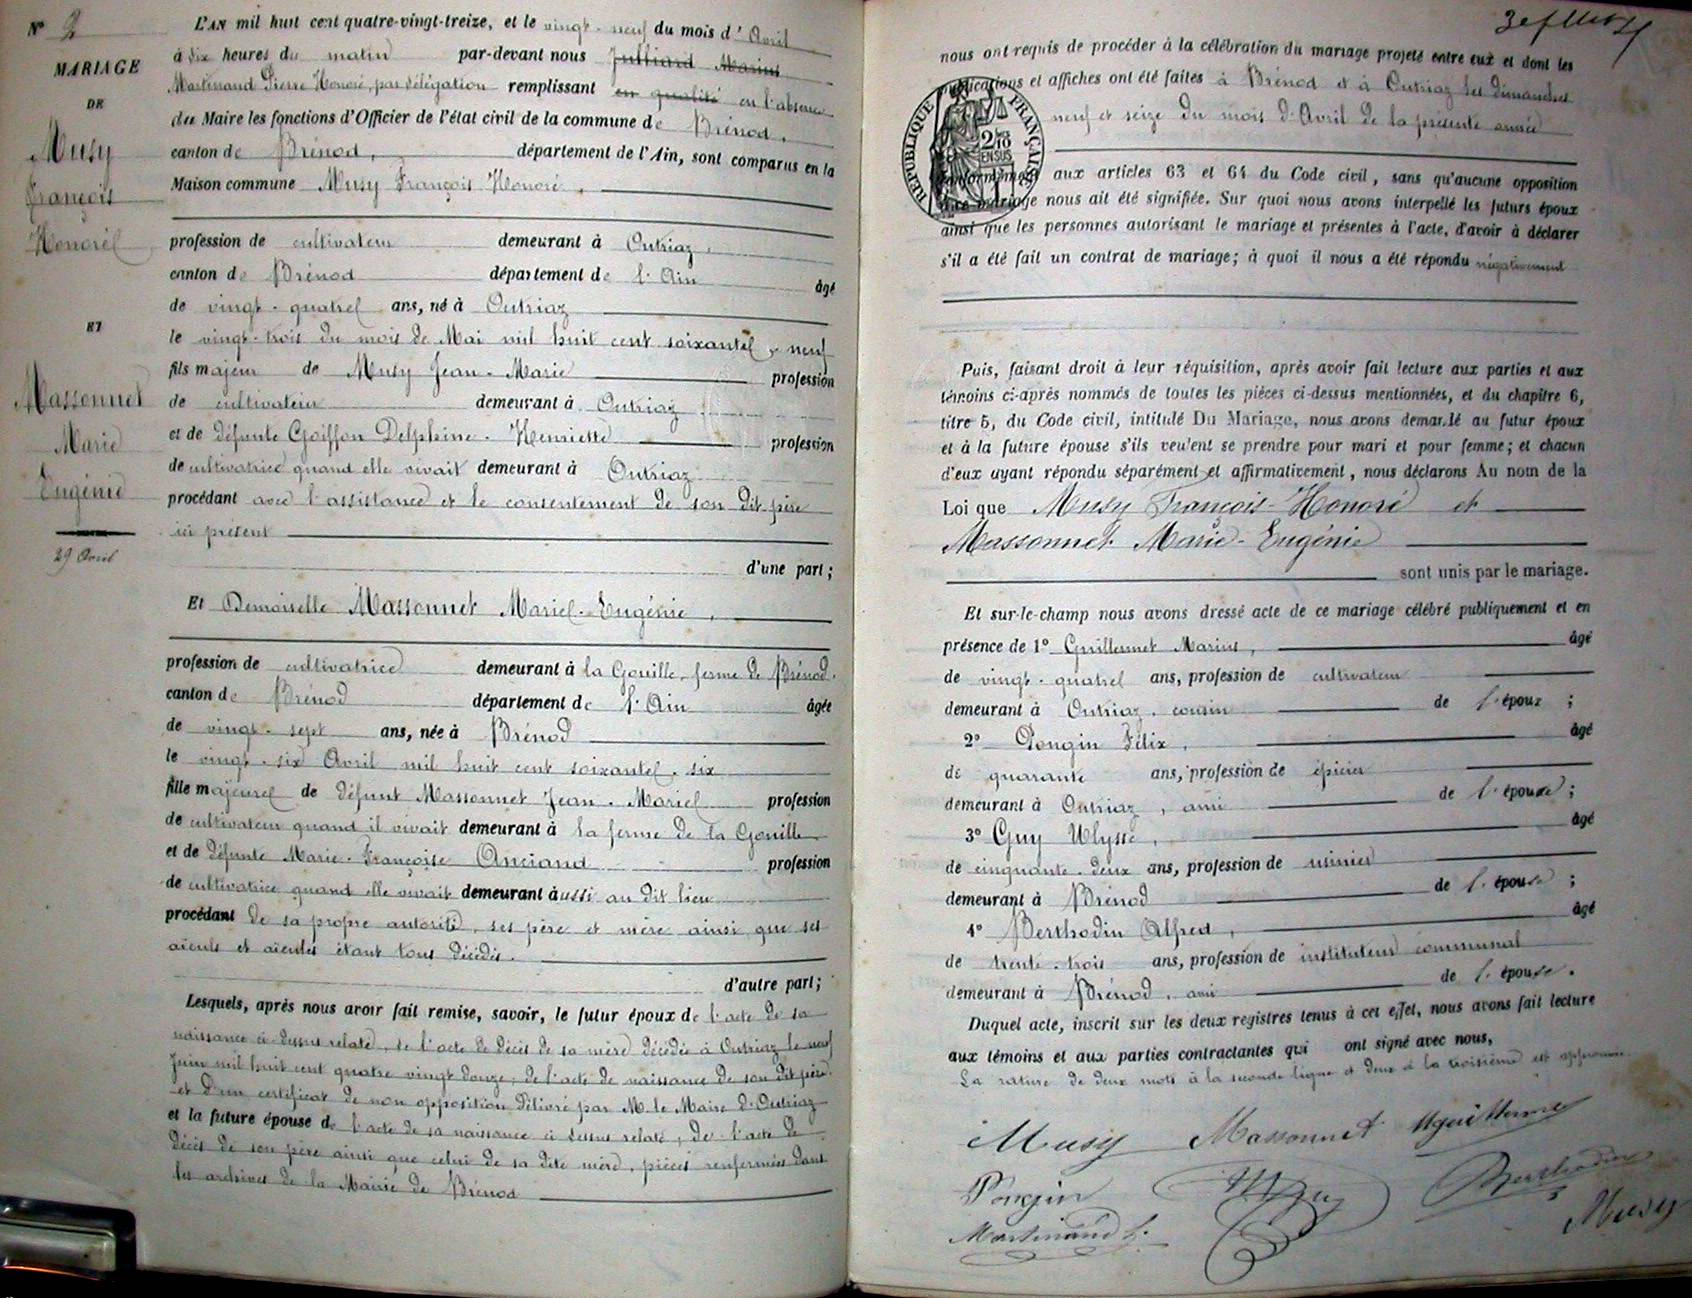 N° 2
MARIAGE
DE
Musy
François
Honoré
ET
Massonnet
Marie
Eugénie
29 Avril
L'AN mil huit cent quatre-vingt-treize, et le vingt-neuf du mois d'Avril
à dix heures du matin par-devant nous Julliard Marius
Martinand Pierre Honoré, par délégation remplissant en qualité en l'absence
du Maire les fonctions d'Officier de l'état civil de la commune de Brénod,
canton de Brénod, département de l'Ain, sont comparus en la
Maison commune Musy François Honoré,
profession de cultivateur demeurant à Outriaz,
canton de Brénod département de l'Ain âgé
de vingt-quatre ans, né à Outriaz
le vingt-trois du mois de Mai mil huit cent soixante-neuf
fils majeur de Musy Jean-Marie profession
de cultivateur demeurant à Outriaz
et de défunte Goiffon Delphine-Henriette profession
de cultivatrice quand elle vivait demeurant à Outriaz
procédant avec l'assistance et le consentement de son dit père
ici présent
d'une part;
Et Demoiselle Massonnet Marie-Eugénie,
profession de cultivatrice demeurant à la Gouille, ferme de Brénod.
canton de Brénod département de l'Ain âgée
de vingt-sept ans, née à Brénod
le vingt-six Avril mil huit cent soixante-six
fille majeure de défunt Massonnet Jean-Marie profession
de cultivateur quand il vivait demeurant à la ferme de la Gouille
et de défunte Marie-Françoise Anciand profession
de cultivatrice quand elle vivait demeurant aussi au dit lieu
procédant de sa propre autorité, ses père et mère ainsi que ses
aïeuls et aïeules étant tous décédés.
d'autre part;
Lesquels, après nous avoir fait remise, savoir, le futur époux de l'acte de sa
naissance ci-dessus relaté, de l'acte de décès de sa mère décédée à Outriaz le neuf
Juin mil huit cent quatre vingt douze; de l'acte de naissance de son dit père
et d'un certificat de non opposition délivré par M. le Maire d'Outriaz
et la future épouse de l'acte de sa naissance ci dessus relaté, de l'acte de
décès de son père ainsi que celui de sa dite mère, pièces renfermées dans
les archives de la Mairie de Brénod
nous ont requis de procéder à la célébration du mariage projeté entre eux et dont les
publications et affiches ont été faites à Brénod et à Outriaz les dimanches
neuf et seize du mois d'Avril de la présente année
RÉPUBLIQUE FRANÇAISE
2/10
EN SUS
conformément aux articles 63 et 64 du Code civil, sans qu'aucune opposition
audit mariage nous ait été signifiée. Sur quoi nous avons interpellé les futurs époux
ainsi que les personnes autorisant le mariage et présentes à l'acte, d'avoir à déclarer
s'il a été fait un contrat de mariage; à quoi il nous a été répondu négativement
Puis, faisant droit à leur réquisition, après avoir fait lecture aux parties et aux
témoins ci-après nommés de toutes les pièces ci-dessus mentionnées, et du chapitre 6,
titre 5, du Code civil, intitulé Du Mariage, nous avons demandé au futur époux
et à la future épouse s'ils veulent se prendre pour mari et pour femme; et chacun
d'eux ayant répondu séparément et affirmativement, nous déclarons Au nom de la
Loi que Musy François-Honoré et
Massonnet Marie-Eugénie
sont unis par le mariage.
Et sur-le-champ nous avons dressé acte de ce mariage célébré publiquement et en
présence de 1° Guillermet Marius, âgé
de vingt-quatre ans, profession de cultivateur
demeurant à Outriaz, cousin de l'époux ;
2° Pongin Félix, âgé
de quarante ans, profession de épicier
demeurant à Outriaz, ami de l'épouse ;
3° Guy Ulysse, âgé
de cinquante-deux ans, profession de usinier
demeurant à Brénod de l'épouse ;
4° Berthodin Alfred, âgé
de trente-trois ans, profession de instituteur communal
demeurant à Brénod, ami de l'épouse.
Duquel acte, inscrit sur les deux registres tenus à cet effet, nous avons fait lecture
aux témoins et aux parties contractantes qui ont signé avec nous,
La rature de deux mots à la seconde ligne et deux à la troisième est approuvée
Musy Massonnet Mguillermet
Pongin Guy Berthodin
Martinand h. Musy